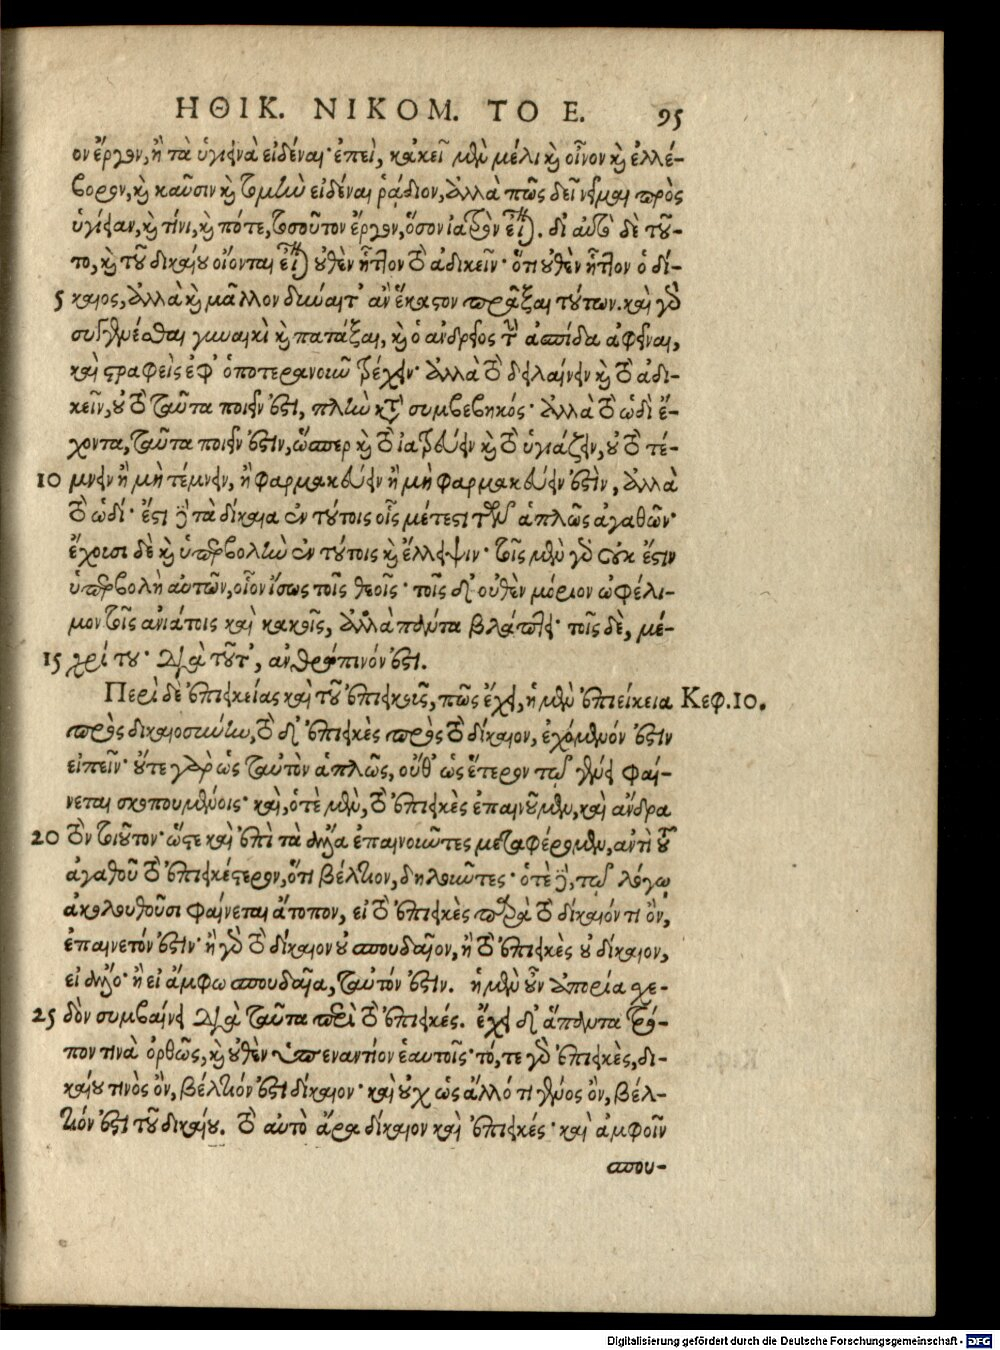 ΗΘΙΚ. ΝΙΚΟΜ. ΤΟ Ε. 95
ον ἔργον, ἢ τὰ ὑγιεινὰ εἰδέναι· ἐπεὶ, κἀκεῖ μὲν μέλι καὶ οἶνον καὶ ἑλλέ-
βορον, καὶ καῦσιν καὶ τομὴν εἰδέναι ῥάδιον, ἀλλὰ πῶς δεῖ νεῖμαι πρὸς
ὑγίειαν, καὶ τίνι, καὶ πότε, τοσοῦτον ἔργον, ὅσον ἰατρὸν εἶναι. δι' αὐτὸ δὲ τοῦ-
το, καὶ τοῦ δικαίου οἴονται εἶναι οὐθὲν ἧττον τὸ ἀδικεῖν· ὅτι οὐθὲν ἧττον ὁ δί-
5 καιος, ἀλλὰ καὶ μᾶλλον δύναιτ' ἂν ἕκαστον πρᾶξαι τούτων. καὶ γὸ
συγγενέσθαι γυναικὶ καὶ πατάξαι, καὶ ὁ ἀνδρεῖος τὴν ἀσπίδα ἀφεῖναι,
καὶ στραφεὶς ἐφ' ὁποτερανοιοῦν τρέχειν· ἀλλὰ τὸ δειλαίνειν καὶ τὸ ἀδι-
κεῖν, οὐ τὸ ταῦτα ποιεῖν ἐστι, πλὴν κατὰ συμβεβηκός· ἀλλὰ τὸ ὡδὶ ἔ-
χοντα, ταῦτα ποιεῖν ἐστιν, ὥσπερ καὶ τὸ ἰατρεύειν καὶ τὸ ὑγιάζειν, οὐ τὸ τέ-
10 μνειν ἢ μὴ τέμνειν, ἢ φαρμακεύειν ἢ μὴ φαρμακεύειν ἐστὶν, ἀλλὰ
τὸ ὡδί· ἔστι δὲ τὰ δίκαια ἐν τούτοις οἷς μέτεστι τῶν ἁπλῶς ἀγαθῶν·
ἔχουσι δὲ καὶ ὑπερβολὴν ἐν τούτοις καὶ ἔλλειψιν· τοῖς μὲν γὰρ οὐκ ἔστιν
ὑπερβολὴ αὐτῶν, οἷον ἴσως τοῖς θεοῖς· τοῖς δ' οὐθὲν μόριον ὠφέλι-
μον τοῖς ἀνιάτοις καὶ κακοῖς, ἀλλὰ πάντα βλάπτει· τοῖς δὲ, μέ-
15 χρί του· διὰ τοῦτ', ἀνθρώπινόν ἐστι.
Περὶ δὲ ἐπιεικείας καὶ τοῦ ἐπιεικοῦς, πῶς ἔχει, ἡ μὲν ἐπιείκεια Κεφ. 10.
πρὸς δικαιοσύνην, τὸ δ' ἐπιεικὲς πρὸς τὸ δίκαιον, ἐχόμενόν ἐστιν
εἰπεῖν· οὔτε γὰρ ὡς ταὐτὸν ἁπλῶς, οὔθ' ὡς ἕτερον τῷ γένει φαί-
νεται σκοπουμένοις· καὶ, ὁτὲ μὲν, τὸ ἐπιεικὲς ἐπαινοῦμεν, καὶ ἄνδρα
20 τὸν τοιοῦτον· ὥστε καὶ ἐπὶ τὰ ἄλλα ἐπαινοῦντες μεταφέρομεν, ἀντὶ τοῦ
ἀγαθοῦ τὸ ἐπιεικέστερον, ὅτι βέλτιον, δηλοῦντες· ὁτὲ δὲ, τῷ λόγῳ
ἀκολουθοῦσι φαίνεται ἄτοπον, εἰ τὸ ἐπιεικὲς παρὰ τὸ δίκαιόν τι ὂν,
ἐπαινετόν ἐστιν· ἢ γὰρ τὸ δίκαιον οὐ σπουδαῖον, ἢ τὸ ἐπιεικὲς οὐ δίκαιον,
εἰ ἄλλο· ἢ εἰ ἄμφω σπουδαῖα, ταὐτόν ἐστιν. ἡ μὲν οὖν ἀπορία χε-
25 δὸν συμβαίνει διὰ ταῦτα περὶ τὸ ἐπιεικές. ἔχει δ' ἅπαντα τρό-
πον τινὰ ὀρθῶς, καὶ οὐθὲν ὑπεναντίον ἑαυτοῖς· τό, τε γὰρ ἐπιεικὲς, δι-
καίου τινὸς ὂν, βέλτιόν ἐστι δίκαιον· καὶ οὐχ ὡς ἄλλό τι γένος ὂν, βέλ-
τιόν ἐστι τοῦ δικαίου. τὸ αὐτὸ ἄρα δίκαιον καὶ ἐπιεικές· καὶ ἀμφοῖν
σπου-
Digitalisierung gefördert durch die Deutsche Forschungsgemeinschaft - DFG